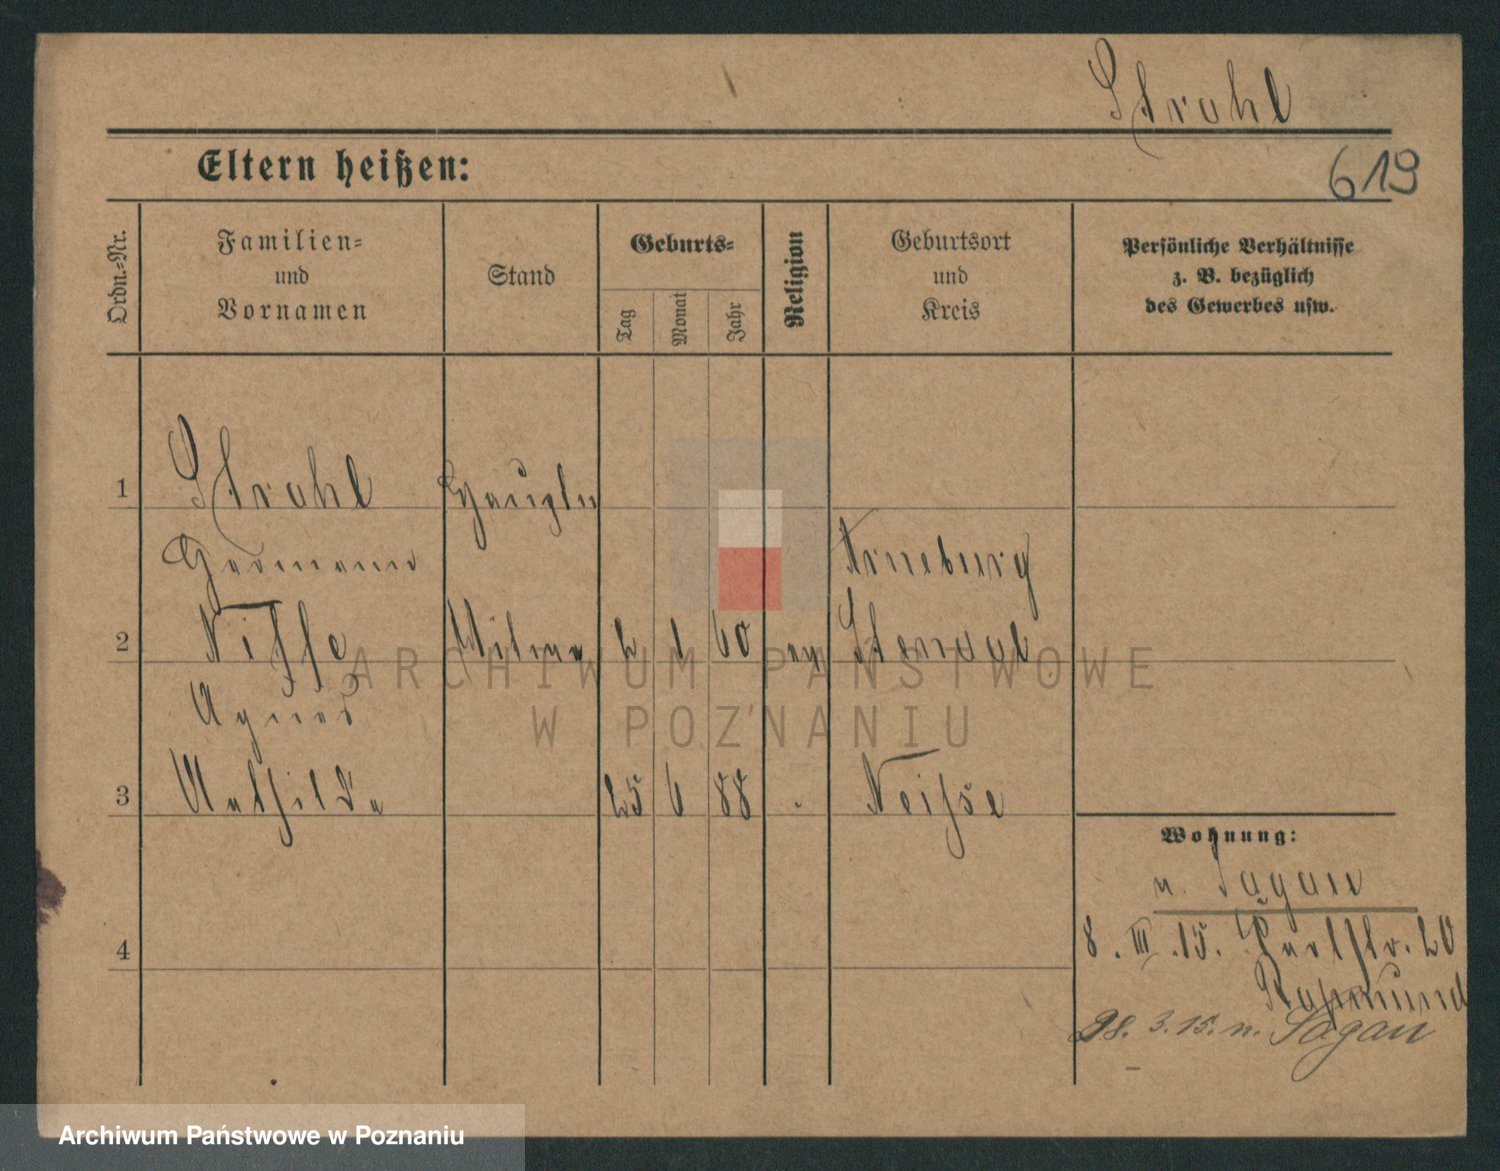 Strohl
Eltern heißen:
619
Ordn.=Nr.
Familien=
und
Vornamen
Stand
Geburts=
Tag
Monat
Jahr
Religion
Geburtsort
und
Kreis
Persönliche Verhältnisse
z. B. bezüglich
des Gewerbes usw.
1
Strohl
Hermann
Arneburg
2
Witwe
2 1 60 ev Stendal
Agnes
3
Mathilde
25 6 88 Neisse
4
Wohnung:
n. Sagan
8. III. 15. 20
28. 3. 15. n. Sagan
ARCHIWUM PAŃSTWOWE
W POZNANIU
Archiwum Państwowe w Poznaniu